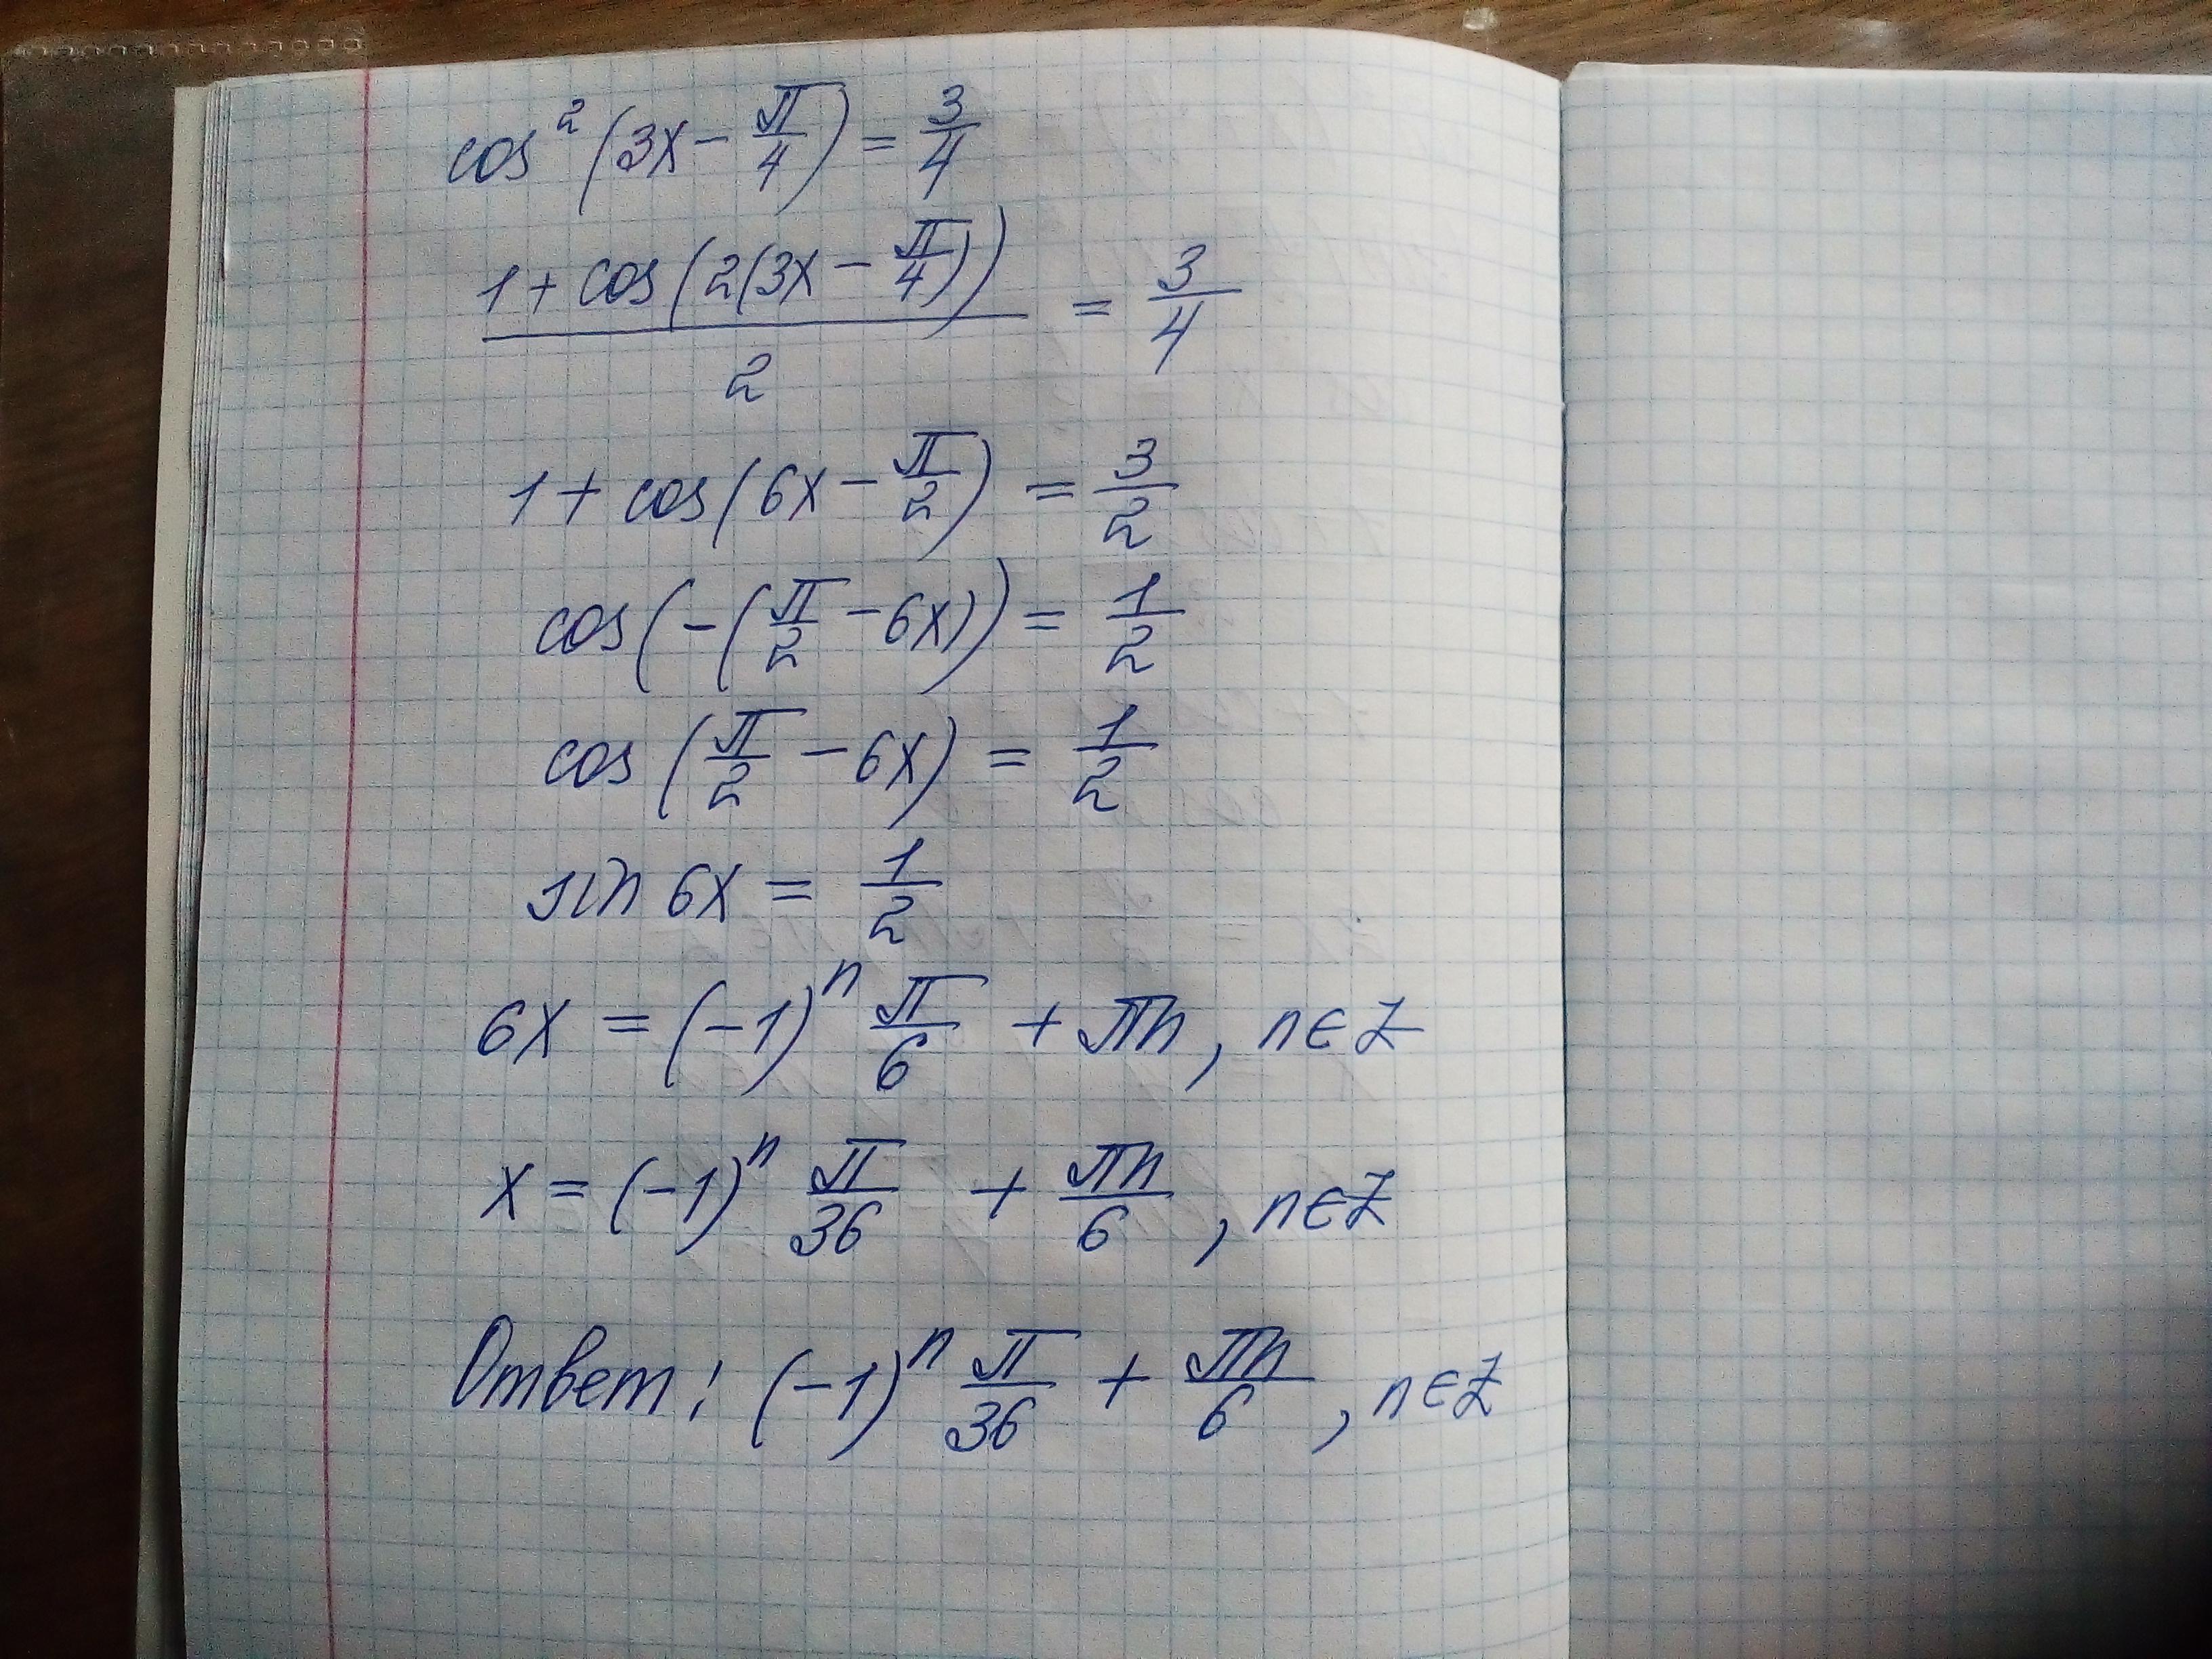 cos²(3x − π/4) = 3/4
(1 + cos(2(3x − π/4)))/2 = 3/4
1 + cos(6x − π/2) = 3/2
cos(−(π/2 − 6x)) = 1/2
cos(π/2 − 6x) = 1/2
sin 6x = 1/2
6x = (−1)ⁿ π/6 + πn, n∈Z
x = (−1)ⁿ π/36 + πn/6, n∈Z
Ответ: (−1)ⁿ π/36 + πn/6, n∈Z